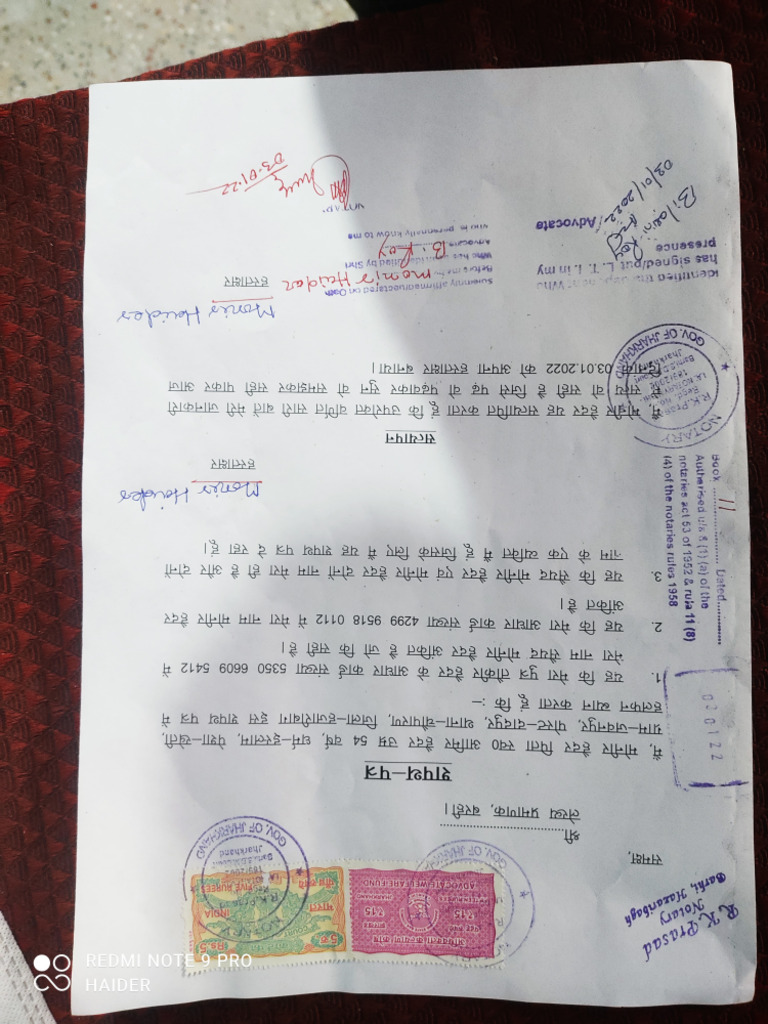 R. K. Prasad
Notary
Barhi, Hazaribagh
अधिवक्ता कल्याण कोष
₹15
ADVOCATE WELFARE FUND
भारत
INDIA
5 रु.
Rs.5
FIVE RUPEES
NOTARY
GOV. OF JHARKHAND
समक्ष,
श्री
लेख्य प्रमाणक, बरही।
शपथ–पत्र
मैं, मोनीर हैदर पिता स्व0 आमिर हैदर उम्र 54 वर्ष, धर्म–इस्लाम, पेशा–खेती,
ग्राम–जवनपुर, पोस्ट–दादपुर, थाना–चौपारण, जिला–हजारीबाग इस शपथ पत्र में
हलफन बयान करता हूं कि :–
1. यह कि मेरा पुत्र तौकीर हैदर के आधार कार्ड संख्या 5350 6609 5412 में
मेरा नाम सैयद मोनीर हैदर अंकित है जो कि सही है।
2. यह कि मेरा आधार कार्ड संख्या 4299 9518 0112 में मेरा नाम मोनीर हैदर
अंकित है।
3. यह कि सैयद मोनीर हैदर एवं मोनीर हैदर दोनो नाम मेरा ही है और दोनो
नाम के एक व्यक्ति मैं हूं जिसके लिए मैं यह शपथ पत्र दे रहा हूं।
030122
Book ........ 11 ........ Dated............
Autherised u/s 8 (1) (a) of the
notaries act 53 of 1952 & rule 11 (8)
(4) of the notaries rules 1958
Monir Haider
हस्ताक्षर
सत्यापन
मैं, मोनीर हैदर यह सत्यापित करता हूं कि उपरोक्त वर्णित सारी बातें मेरी जानकारी
में सत्य वो सही है जिसे पढ़ वो पढ़वाकर सुन वो समझकर सही पाकर आज
दिनांक 03.01.2022 को अपना हस्ताक्षर बनाया।
NOTARY
R.K. Prasad
Jharkhand
GOV. OF JHARKHAND
Monir Haider
हस्ताक्षर
Identified the deponent Who
has signed/put L. T. I. in my
presence
Bilasin Roy
Advocate
03/01/2022
Before me by Monir Haidar
Who has identified by Shri
Advocate B. Roy
who is personally know to me
03.01.22
REDMI NOTE 9 PRO
HAIDER